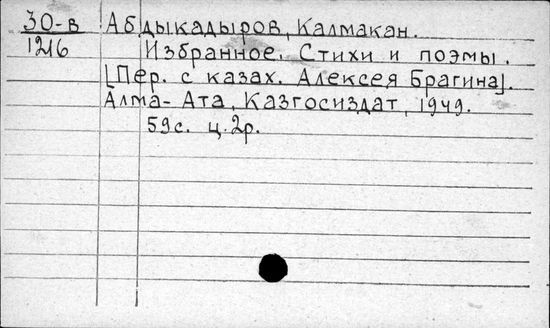 30-в Абдыкадыров, Калмакан.
1216 Избранное. Стихи и поэмы.
[Пер. с казах. Алексея Брагина].
Алма-Ата, Казгосиздат, 1949.
59с. ц.2р.